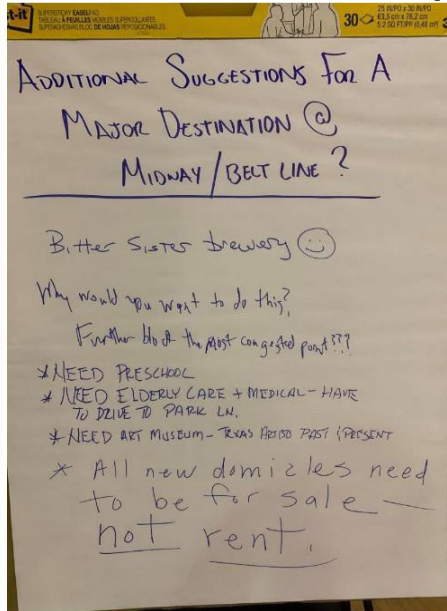 st-it
SUPERSTICKY EASEL PAD
TABLEAU À FEUILLES MOBILES SUPERCOLLANTES
SUPERADHESIVAS BLOC DE HOJAS REPOSICIONABLES
30
25 IN/PO x 30 IN/PO
63,5 cm x 76,2 cm
5.2 SQ FT/PP (0,48 m²)
ADDITIONAL SUGGESTIONS FOR A
MAJOR DESTINATION @
MIDWAY / BELT LINE ?
Bitter Sister brewery ☺
Why would you want to do this?
Further block the most congested point???
* NEED PRESCHOOL
* NEED ELDERLY CARE + MEDICAL - HAVE
TO DRIVE TO PARK LN.
* NEED ART MUSEUM - TEXAS PAST & PRESENT
* All new domiciles need
to be for sale —
not rent.